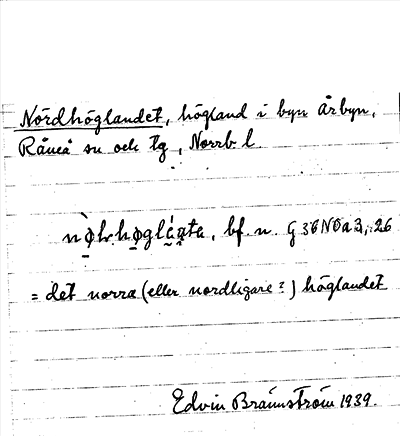 Nordhöglandet, högland i byn Årbyn,
Råneå sn och tg, Norrb l
bf. n. G 36 N Ö a 3, 26
= det norra (eller nordligare?) höglandet
Edvin Brännström 1939.